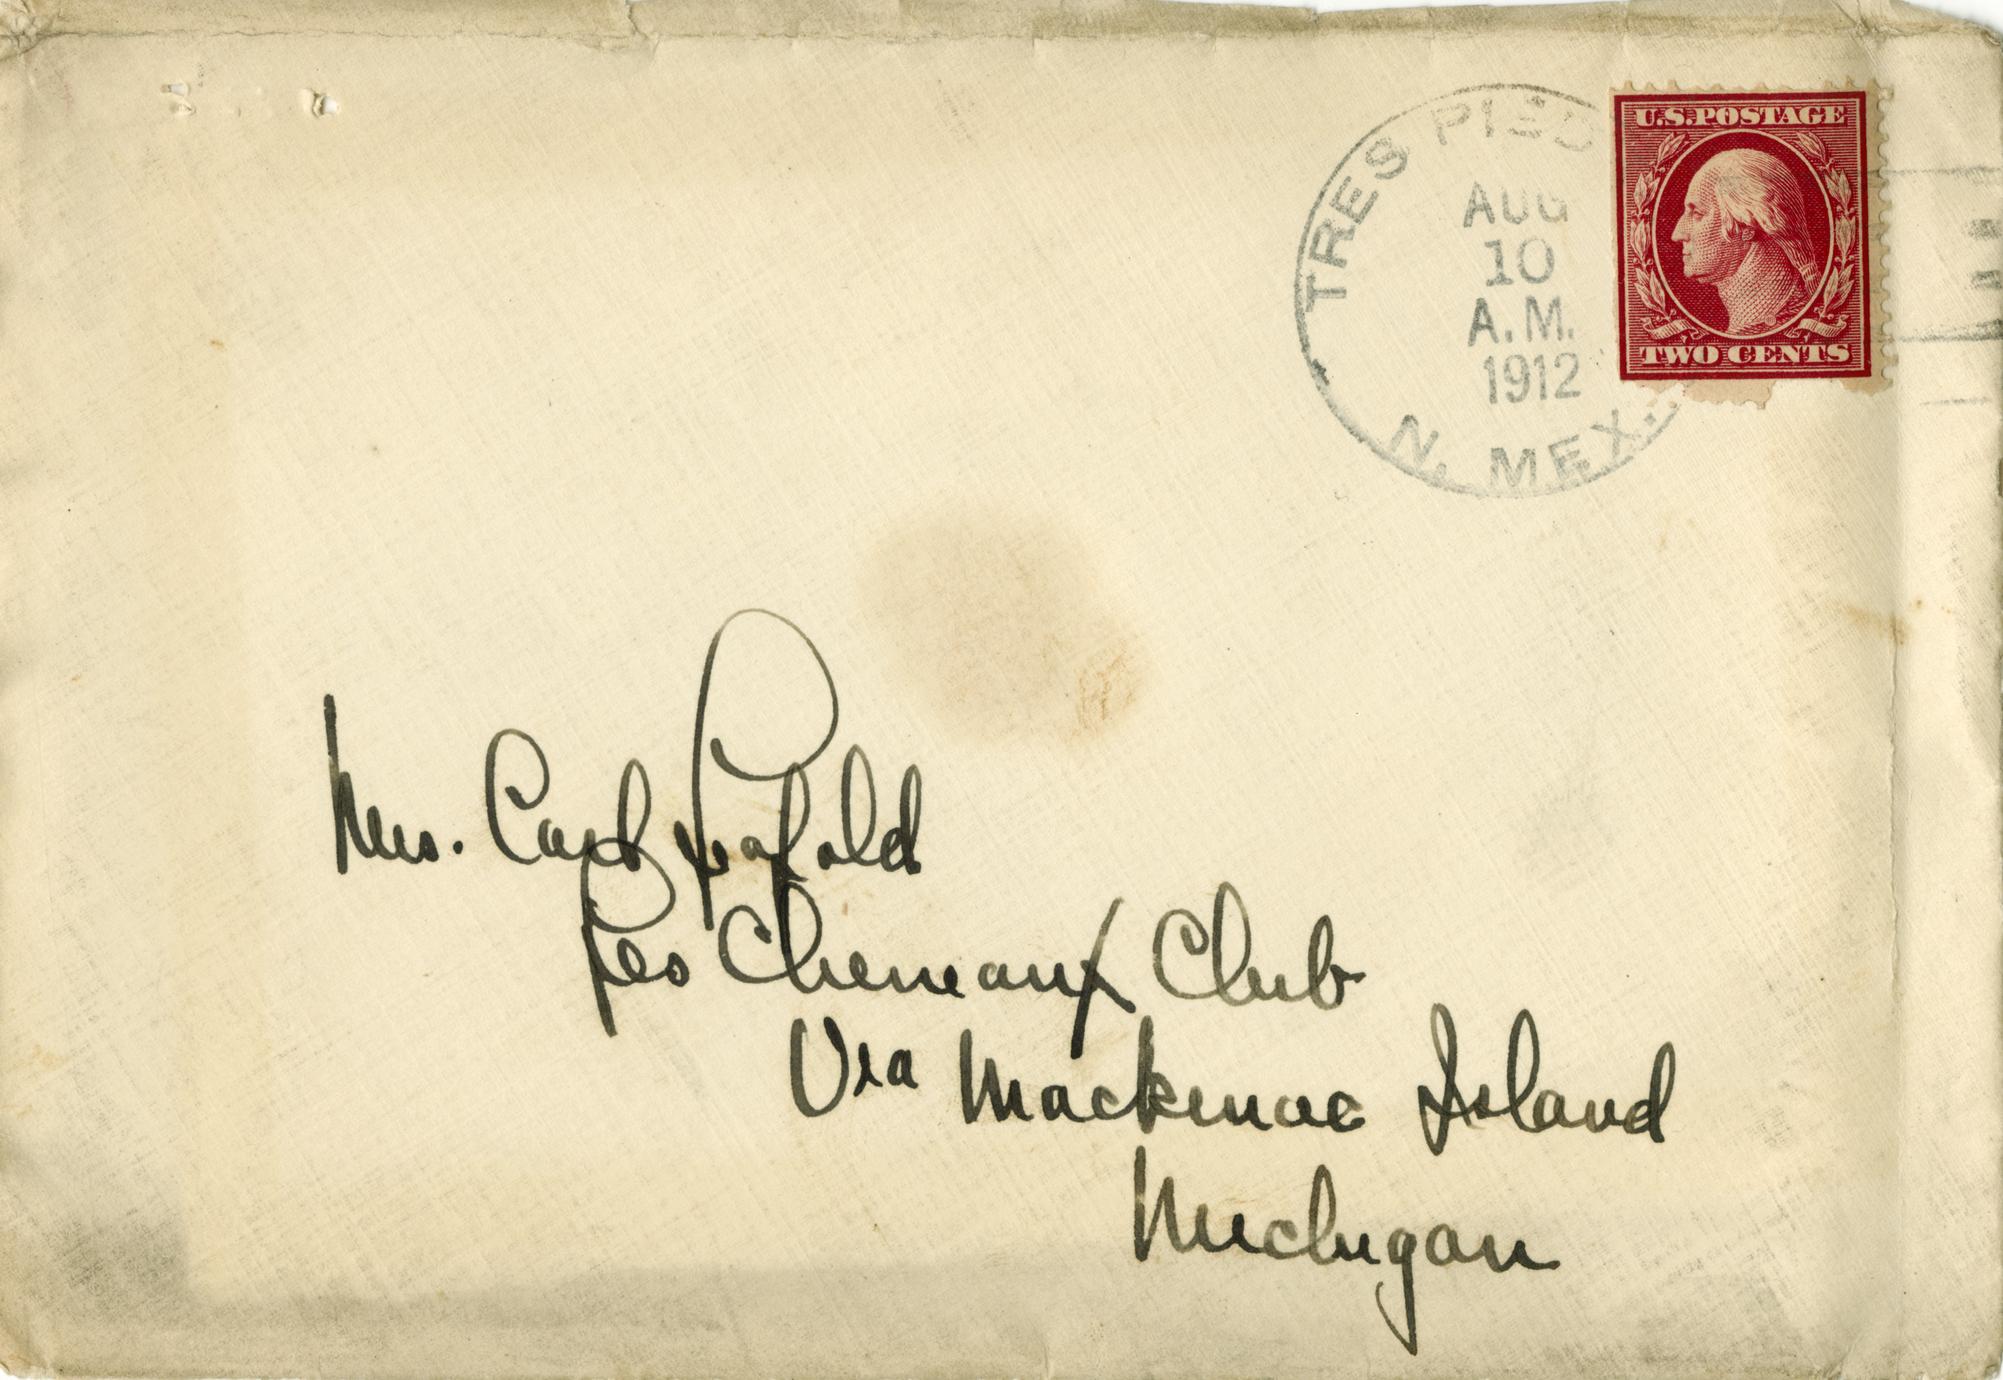 TRES PIED
AUG
10
A.M.
1912
N. MEX.
U.S. POSTAGE
TWO CENTS
Mrs. Carl Leopold
Les Cheneaux Club
Via Mackinac Island
Michigan